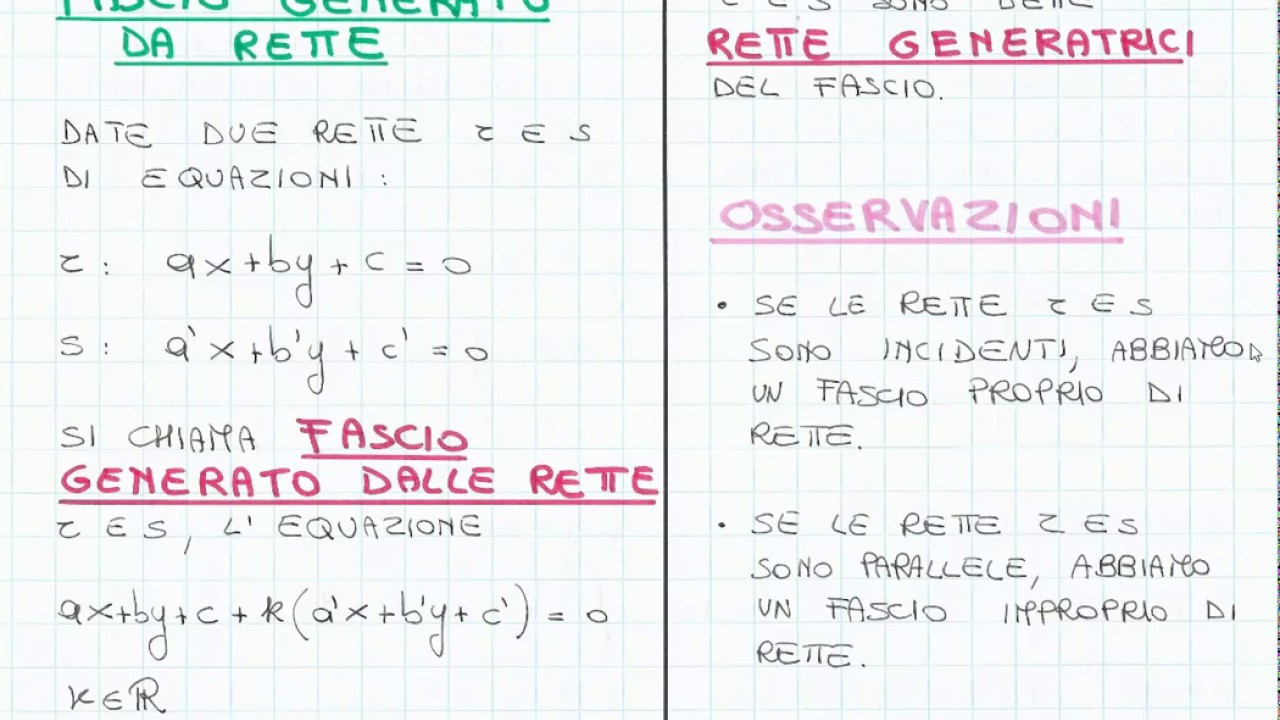 FASCIO GENERATO
DA RETTE
DATE DUE RETTE r E S
DI EQUAZIONI:
r: ax+by+c=0
S: a'x+b'y+c'=0
SI CHIAMA FASCIO
GENERATO DALLE RETTE
r E S, L'EQUAZIONE
ax+by+c+k(a'x+b'y+c')=0
K∈ℝ
r E S SONO DETTE
RETTE GENERATRICI
DEL FASCIO.
OSSERVAZIONI
• SE LE RETTE r E S
SONO INCIDENTI, ABBIAMO
UN FASCIO PROPRIO DI
RETTE.
• SE LE RETTE r E S
SONO PARALLELE, ABBIAMO
UN FASCIO IMPROPRIO DI
RETTE.